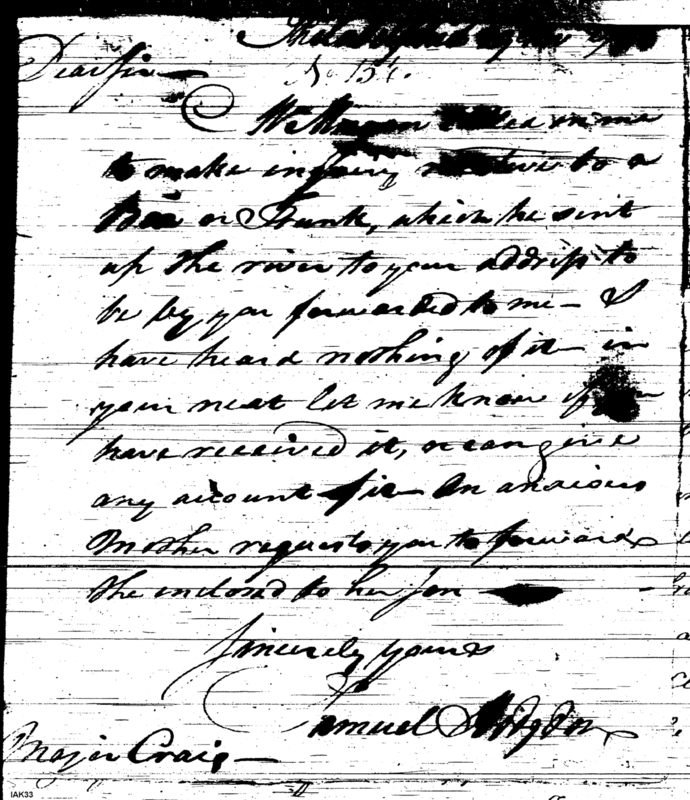 Philadelphia
Dear Sir
No 151.
called on me
to make inquiry relative to a
Box or Trunk, which he sent
up the river to your address to
be by you forwarded to me — I
have heard nothing of it — in
your next let me know if you
have received it, or can give
any account of it — An anxious
Mother requests you to forward
the inclosed to her son
Sincerely yours
Samuel Hodgdon
Major Craig —
IAK33